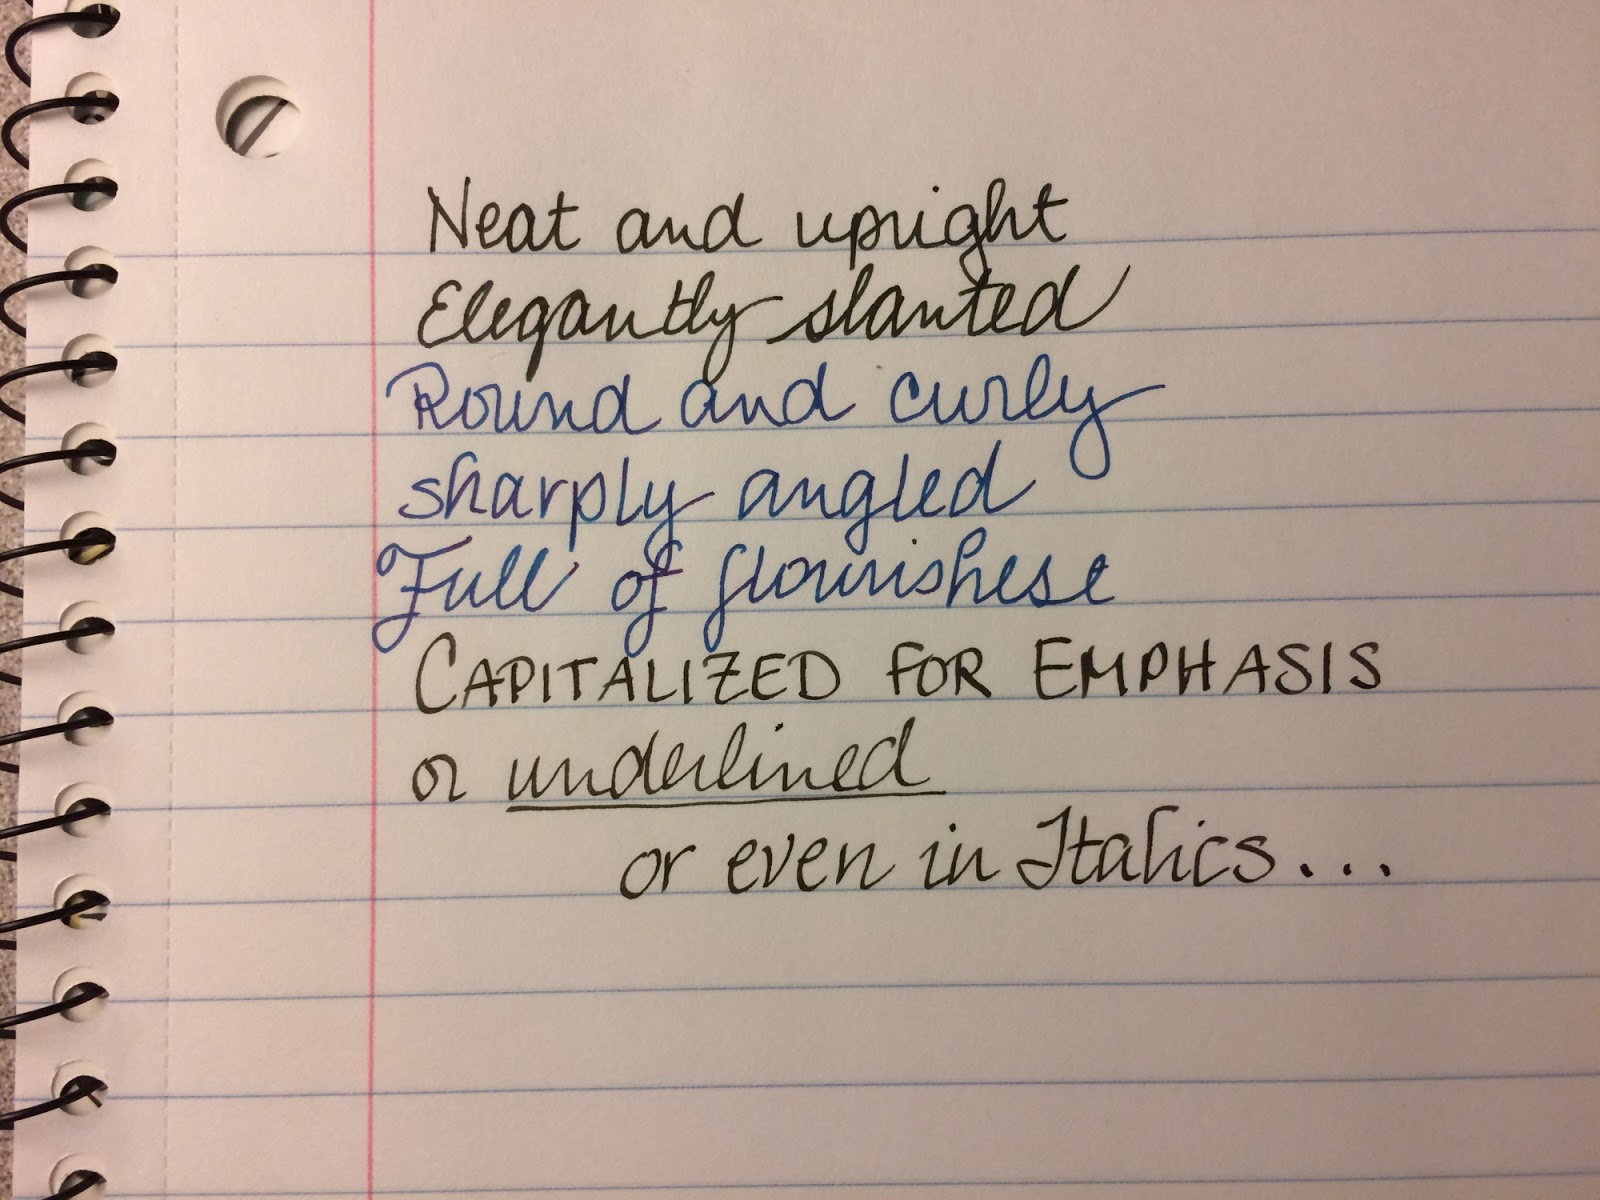 Neat and upright
Elegantly slanted
Round and curly
sharply angled
Full of flourishese
CAPITALIZED FOR EMPHASIS
or underlined
or even in Italics...